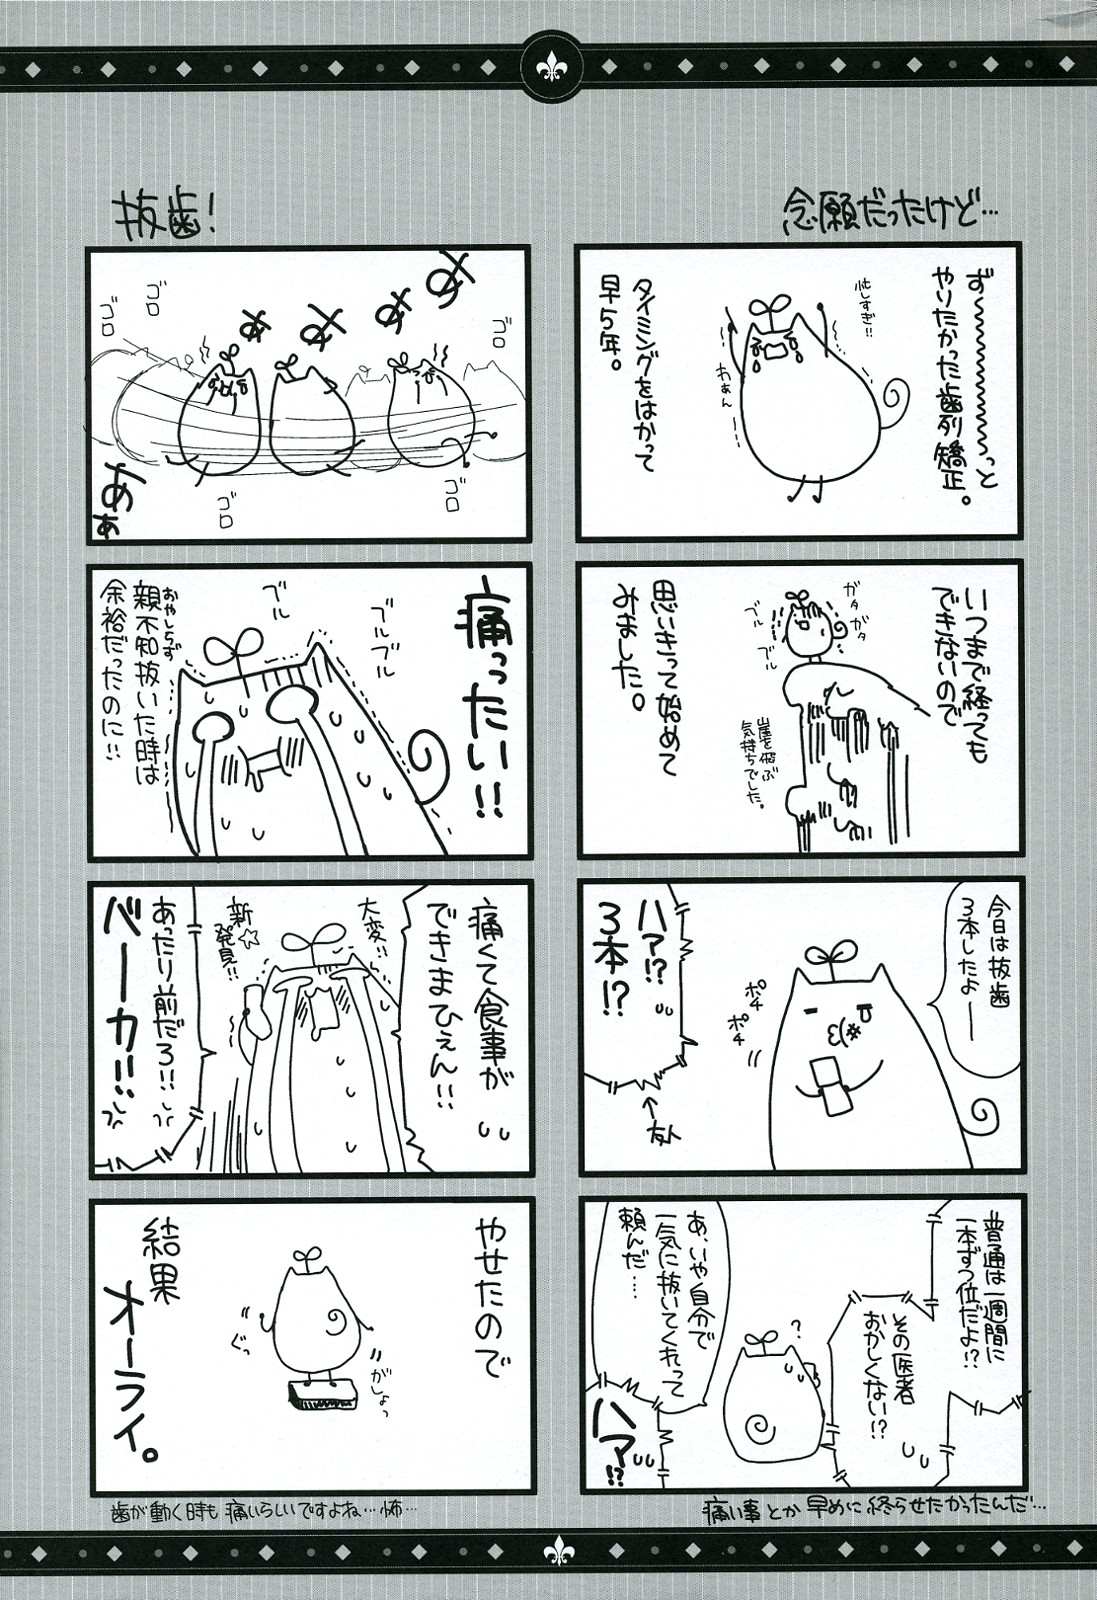 念願だったけど…
ず〜〜〜っと
やりたかった歯列矯正。
忙しすぎ!!
わぁん
タイミングをはかって
早5年。
いつまで経っても
できないので
ガタガタ
ブル
ブル
崖を飛ぶ
気持ちでした。
思いきって始めて
みました。
今日は抜歯
3本したよー
ポチ
ポチ
ハァ!?
3本!?
←友人
普通は一週間に
一本ずつ位だよ!?
その医者
おかしくない!?
?
あ、いや自分で
一気に抜いてくれって
頼んだ……
ハァ!?
痛い事とか早めに終らせたかったんだ…
抜歯!
あ
あ
あ
あ
ゴロ
ゴロ
ゴロ
ゴロ
ゴロ
あぁ
痛ったい!!
ブルブル
ブル
親不知抜いた時は
おやしらず
余裕だったのに!!
痛くて食事が
できまひぇん!!
大変!!
新☆
発見!!
あったり前だろ!!
バーカ!!
やせたので
がしょっ
ぐっ
結果
オーライ。
歯が動く時も痛いらしいですよね…怖…